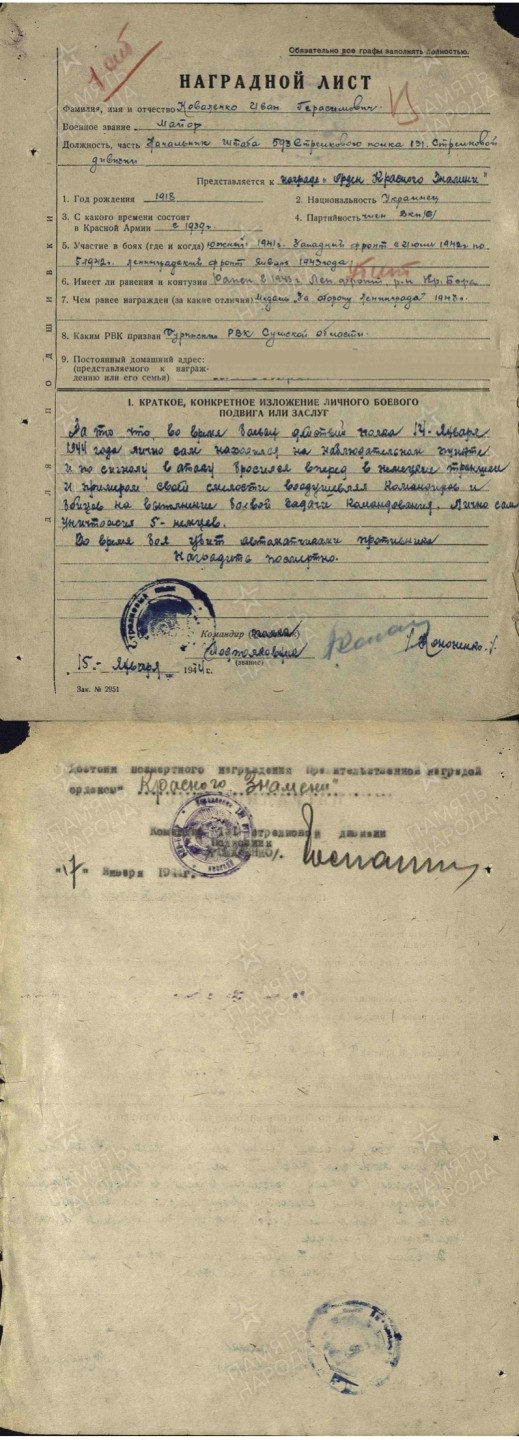 Обязательно все графы заполнять полностью.
НАГРАДНОЙ ЛИСТ
Фамилия, имя и отчество Коваленко Иван Герасимович
Военное звание майор
Должность, часть Начальник штаба 593 Стрелкового полка 131. Стрелковой
дивизии
Представляется к награде "Орден Красного Знамени"
1. Год рождения 1918 2. Национальность Украинец
3. С какого времени состоит
в Красной Армии с 1939г. 4. Партийность член ВКП(б)
5. Участие в боях (где и когда) 1941г. Западный фронт с 1942г по
1942г. Ленинградский фронт 1943 года;
6. Имеет ли ранения и контузии Ранен в 1943г. Лен. фронт р-н Кр. Бора
убит
7. Чем ранее награжден (за какие отличия) Медаль За оборону Ленинграда 1943г.
8. Каким РВК призван РВК Сумской области.
9. Постоянный домашний адрес:
(представляемого к награж-
дению или его семьи)
I. КРАТКОЕ, КОНКРЕТНОЕ ИЗЛОЖЕНИЕ ЛИЧНОГО БОЕВОГО
ПОДВИГА ИЛИ ЗАСЛУГ
За то что, во время боевых действий полка 14 - Января
1944 года лично сам находился на наблюдательном пункте
и по сигналу в атаку бросился вперед в немецкие траншеи
и примером своей смелости воодушевлял командиров и
бойцов на выполнение боевой задачи командования. Лично сам
уничтожил 5 - немцев.
Во время боя убит автоматчиками противника
Наградить посмертно.
Командир полка
Подполковник
(звание)
15.- Января 1944 г.
Зак. № 2951
Достоин посмертного награждения Правительственной наградой
орденом "Красного Знамени"
Командир 131 стрелковой дивизии
Полковник
"17" Января 1944г.
ПАМЯТЬ
НАРОДА